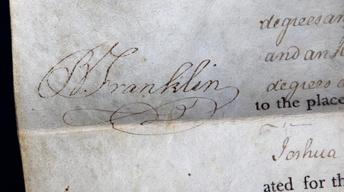 degrees an
and an h
B Franklin
degrees a
to the place
Joshua
ated for th